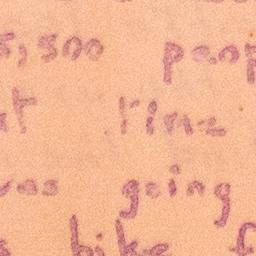 5,500 peop
at time
was going
bike f